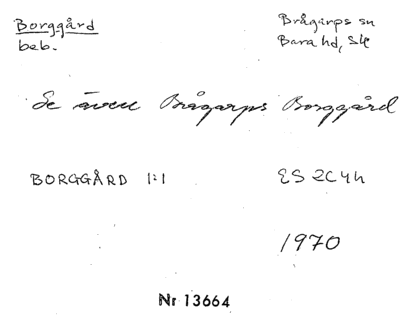 Borggård
beb.
Brågarps sn
Bara hd, Sk
Se även Brågarps Borggård
BORGGÅRD 1:1
ES 2C4h
1970
Nr 13664